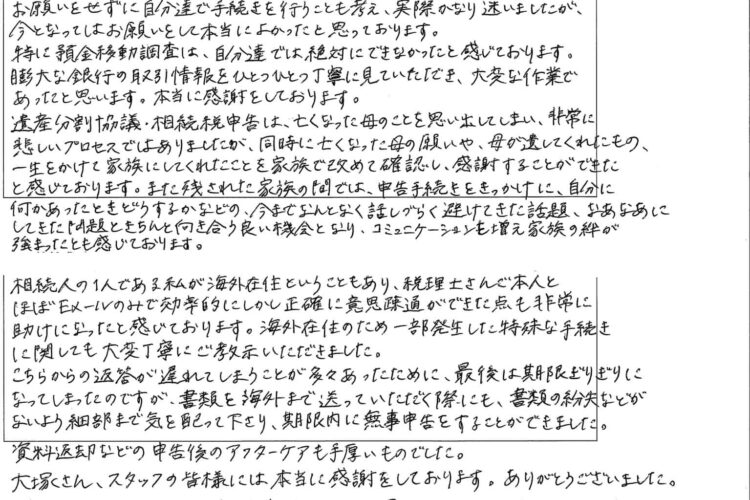 お願いをせずに自分達で手続きを行うことも考え、実際かなり迷いましたが、
今となってはお願いをして本当によかったと思っております。
特に預金移動調査は、自分達では絶対にできなかったと感じております。
膨大な銀行の取引情報をひとつひとつ丁寧に見ていただき、大変な作業で
あったと思います。本当に感謝をしております。
遺産分割協議・相続税申告は、亡くなった母のことを思い出してしまい、非常に
悲しいプロセスではありましたが、同時に亡くなった母の願いや、母が遺してくれたもの、
一生をかけて家族にしてくれたことを家族で改めて確認し、感謝することができた
と感じております。また残された家族の間では、申告手続きをきっかけに、自分に
何かあったときどうするかなどの、今までなんとなく話しづらく避けてきた話題、なあなあに
してきた問題ときちんと向き合う良い機会となり、コミュニケーションも増え家族の絆が
強まったとも感じております。
相続人の1人である私が海外在住ということもあり、税理士さんご本人と
ほぼEメールのみで効率的にしかし正確に意思疎通ができた点も非常に
助けになったと感じております。海外在住のため一部発生した特殊な手続き
に関しても大変丁寧にご教示いただきました。
こちらからの返答が遅れてしまうことが多々あったために、最後は期限ぎりぎりに
なってしまったのですが、書類を海外まで送っていただく際にも、書類の紛失などが
ないよう細部まで気を配って下さり、期限内に無事申告をすることができました。
資料返却などの申告後のアフターケアも手厚いものでした。
大塚さん、スタッフの皆様には本当に感謝をしております。ありがとうございました。